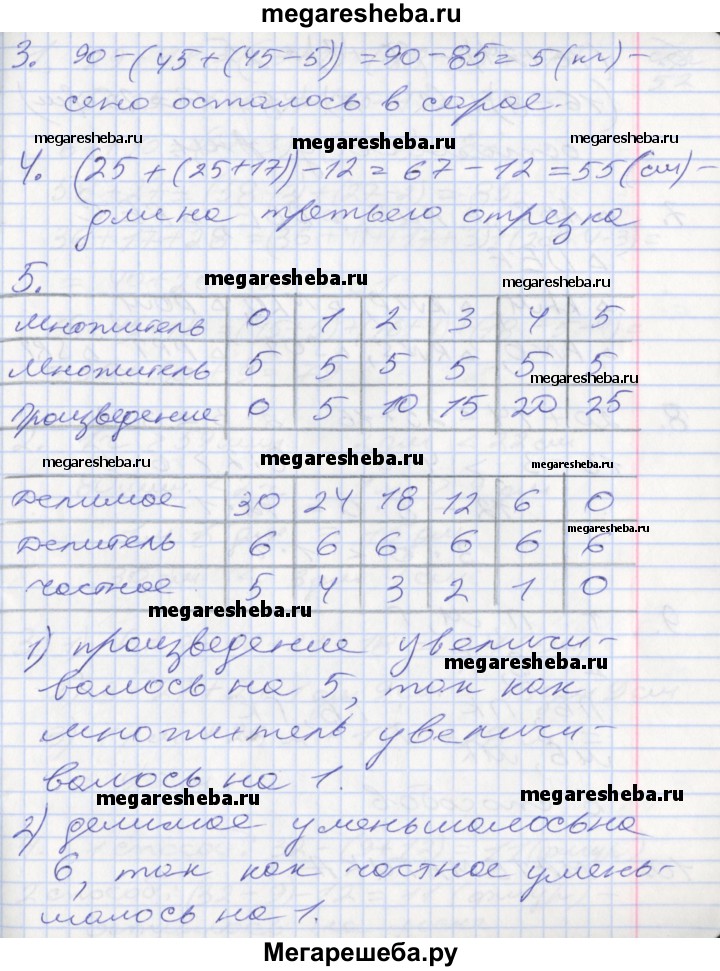 megaresheba.ru
3. 90-(45+(45-5))=90-85=5(кг)-
сено осталось в сарае.
megaresheba.ru megaresheba.ru megaresheba.ru
4. (25+(25+17))-12=67-12=55(см)-
длина третьего отрезка
5. megaresheba.ru megaresheba.ru
множитель 0 1 2 3 4 5
множитель 5 5 5 5 5 5
megaresheba.ru
произведение 0 5 10 15 20 25
megaresheba.ru megaresheba.ru megaresheba.ru
делимое 30 24 18 12 6 0
megaresheba.ru
делитель 6 6 6 6 6 6
частное 5 4 3 2 1 0
megaresheba.ru
1) произведение увеличи-
megaresheba.ru
валось на 5, так как
множитель увеличи-
валось на 1.
megaresheba.ru megaresheba.ru
2) делимое уменьшалось на
6, так как частное умень-
шалось на 1.
Мегарешеба.ру